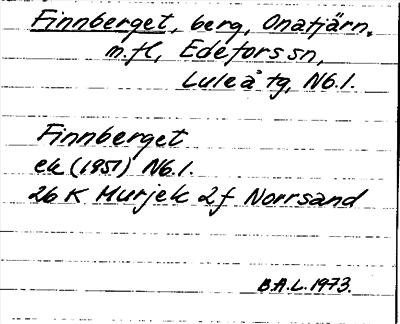 Finnberget, berg, Onatjärn.
m.fl, Edefors sn,
Luleå tg, Nb.l.
Finnberget
ek (1951) Nb.l.
26 K Murjek 2f Norrsand
B.A.L. 1973.